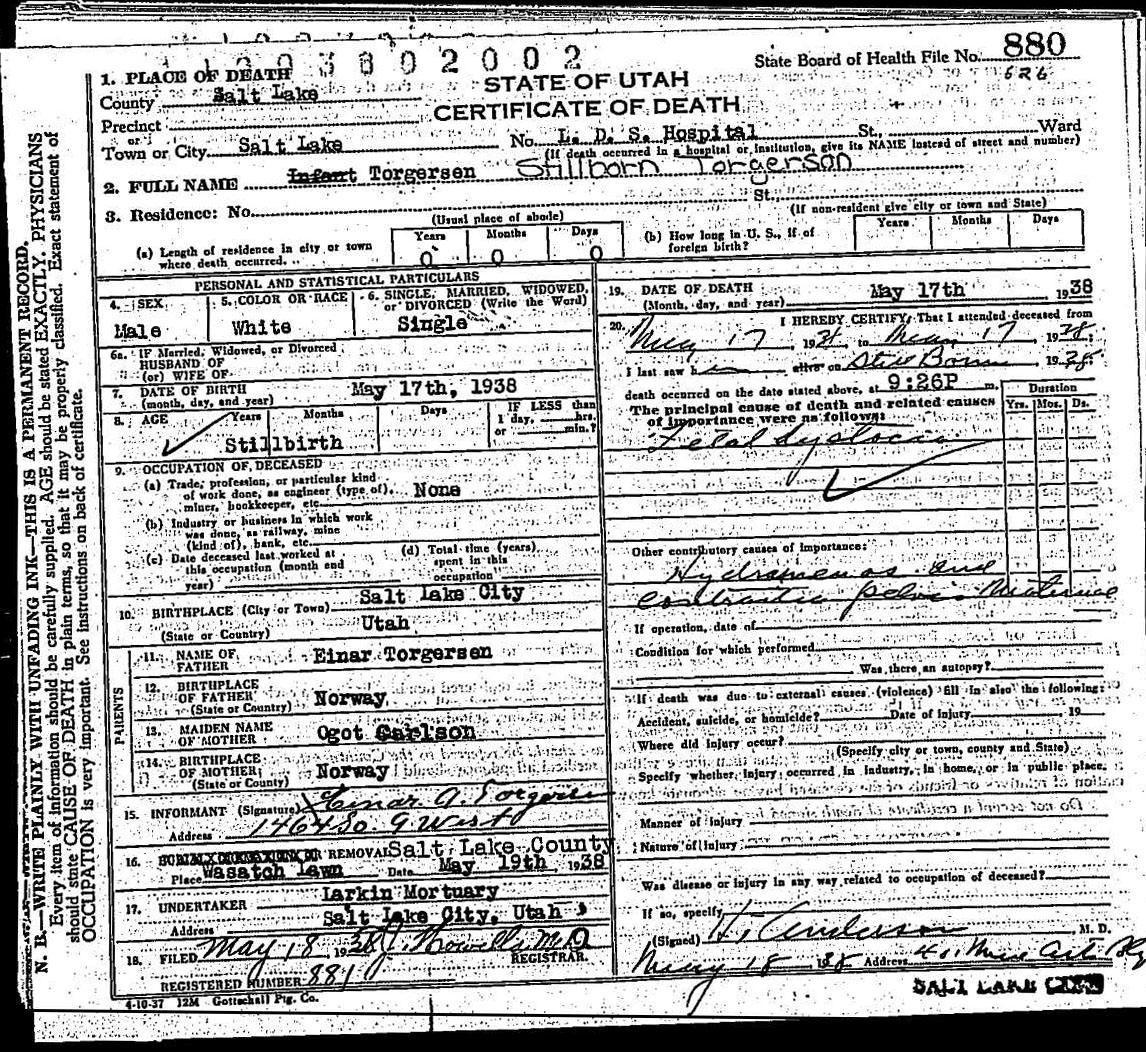 1 9 3 8 0 2 0 0 2
State Board of Health File No. 880
526
STATE OF UTAH
CERTIFICATE OF DEATH
1. PLACE OF DEATH
County Salt Lake
Precinct
or
Town or City Salt Lake No. L. D. S. Hospital St., Ward
(If death occurred in a hospital or institution, give its NAME instead of street and number)
2. FULL NAME Infant Torgersen Stillborn Torgerson
3. Residence: No. St.,
(Usual place of abode) (If non-resident give city or town and State)
(a) Length of residence in city or town where death occurred. Years 0 Months 0 Days 0
(b) How long in U. S., if of foreign birth? Years Months Days
PERSONAL AND STATISTICAL PARTICULARS
4. SEX Male
5. COLOR OR RACE White
6. SINGLE, MARRIED, WIDOWED, or DIVORCED (Write the Word) Single
6a. IF Married, Widowed, or Divorced
HUSBAND OF
(or) WIFE OF
7. DATE OF BIRTH (month, day, and year) May 17th, 1938
8. AGE Years Months Days IF LESS than 1 day, hrs. or min.?
Stillbirth
9. OCCUPATION OF DECEASED
(a) Trade, profession, or particular kind of work done, as engineer (type of), miner, bookkeeper, etc. None
(b) Industry or business in which work was done, as railway, mine (kind of), bank, etc.
(c) Date deceased last worked at this occupation (month and year)
(d) Total time (years) spent in this occupation
10. BIRTHPLACE (City or Town) Salt Lake City
(State or Country) Utah
PARENTS
11. NAME OF FATHER Einar Torgersen
12. BIRTHPLACE OF FATHER (State or Country) Norway
13. MAIDEN NAME OF MOTHER Ogot Carlson
14. BIRTHPLACE OF MOTHER (State or County) Norway
15. INFORMANT (Signature) Einar A. Torgersen
Address 1464 So. 9 West
16. REMOVAL Salt Lake County
Place Wasatch Lawn Date May 19th, 1938
17. UNDERTAKER Larkin Mortuary
Address Salt Lake City, Utah
18. FILED May 18 1938 J. Howells M.D. REGISTRAR.
REGISTERED NUMBER 881
4-10-37 12M Gottschall Ptg. Co.
19. DATE OF DEATH (Month, day, and year) May 17th 1938
20. I HEREBY CERTIFY, That I attended deceased from
May 17, 1938, to May 17, 1938.
I last saw h alive on Still Born 1938
death occurred on the date stated above, at 9:26P m.
The principal cause of death and related causes of importance were as follows:
Duration
Yrs. Mos. Ds.
Fetal dystocia
Other contributory causes of importance:
Hydramnios and
contracted pelvis Maternal
If operation, date of
Condition for which performed
Was there an autopsy?
If death was due to external causes (violence) fill in also the following:
Accident, suicide, or homicide? Date of injury 19
Where did injury occur?
(Specify city or town, county and State)
Specify whether injury occurred in industry, in home, or in public place.
Manner of injury
Nature of injury
Was disease or injury in any way related to occupation of deceased?
If so, specify
(Signed) H. Anderson M. D.
May 18 1938 Address
SALT LAKE CITY
N. B.—WRITE PLAINLY WITH UNFADING INK—THIS IS A PERMANENT RECORD.
Every item of information should be carefully supplied. AGE should be stated EXACTLY. PHYSICIANS
should state CAUSE OF DEATH in plain terms, so that it may be properly classified. Exact statement of
OCCUPATION is very important. See instructions on back of certificate.